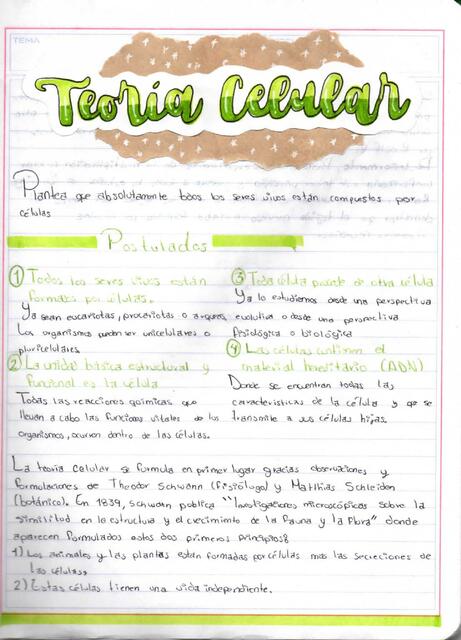 TEMA
Teoría Celular
Plantea que absolutamente todos los seres vivos están compuestos por
células
Postulados
1 Todos los seres vivos están
formados por células.
Ya sean eucariotas, procariotas o arqueas.
Los organismos pueden ser unicelulares o
pluricelulares
2 La unidad básica estructural y
funcional es la célula
Todas las reacciones químicas que
llevan a cabo las funciones vitales de los
organismos, ocurren dentro de las células.
3 Toda célula procede de otra célula
Ya lo estudiemos desde una perspectiva
evolutiva o desde una perspectiva
fisiológica o biológica
4 Las células contienen el
material hereditario (ADN)
Donde se encuentran todas las
características de la célula y que se
transmite a sus células hijas.
La teoría celular se formula en primer lugar gracias observaciones y
formulaciones de Theodor Schwann (fisiólogo) y Matthias Schleiden
(botánico). En 1839, Schwann publica "Investigaciones microscópicas sobre la
similitud en la estructura y el crecimiento de la fauna y la flora" donde
aparecen formulados estos dos primeros principios:
1) Los animales y las plantas están formadas por células mas las secreciones de
las células.
2) Estas células tienen una vida independiente.